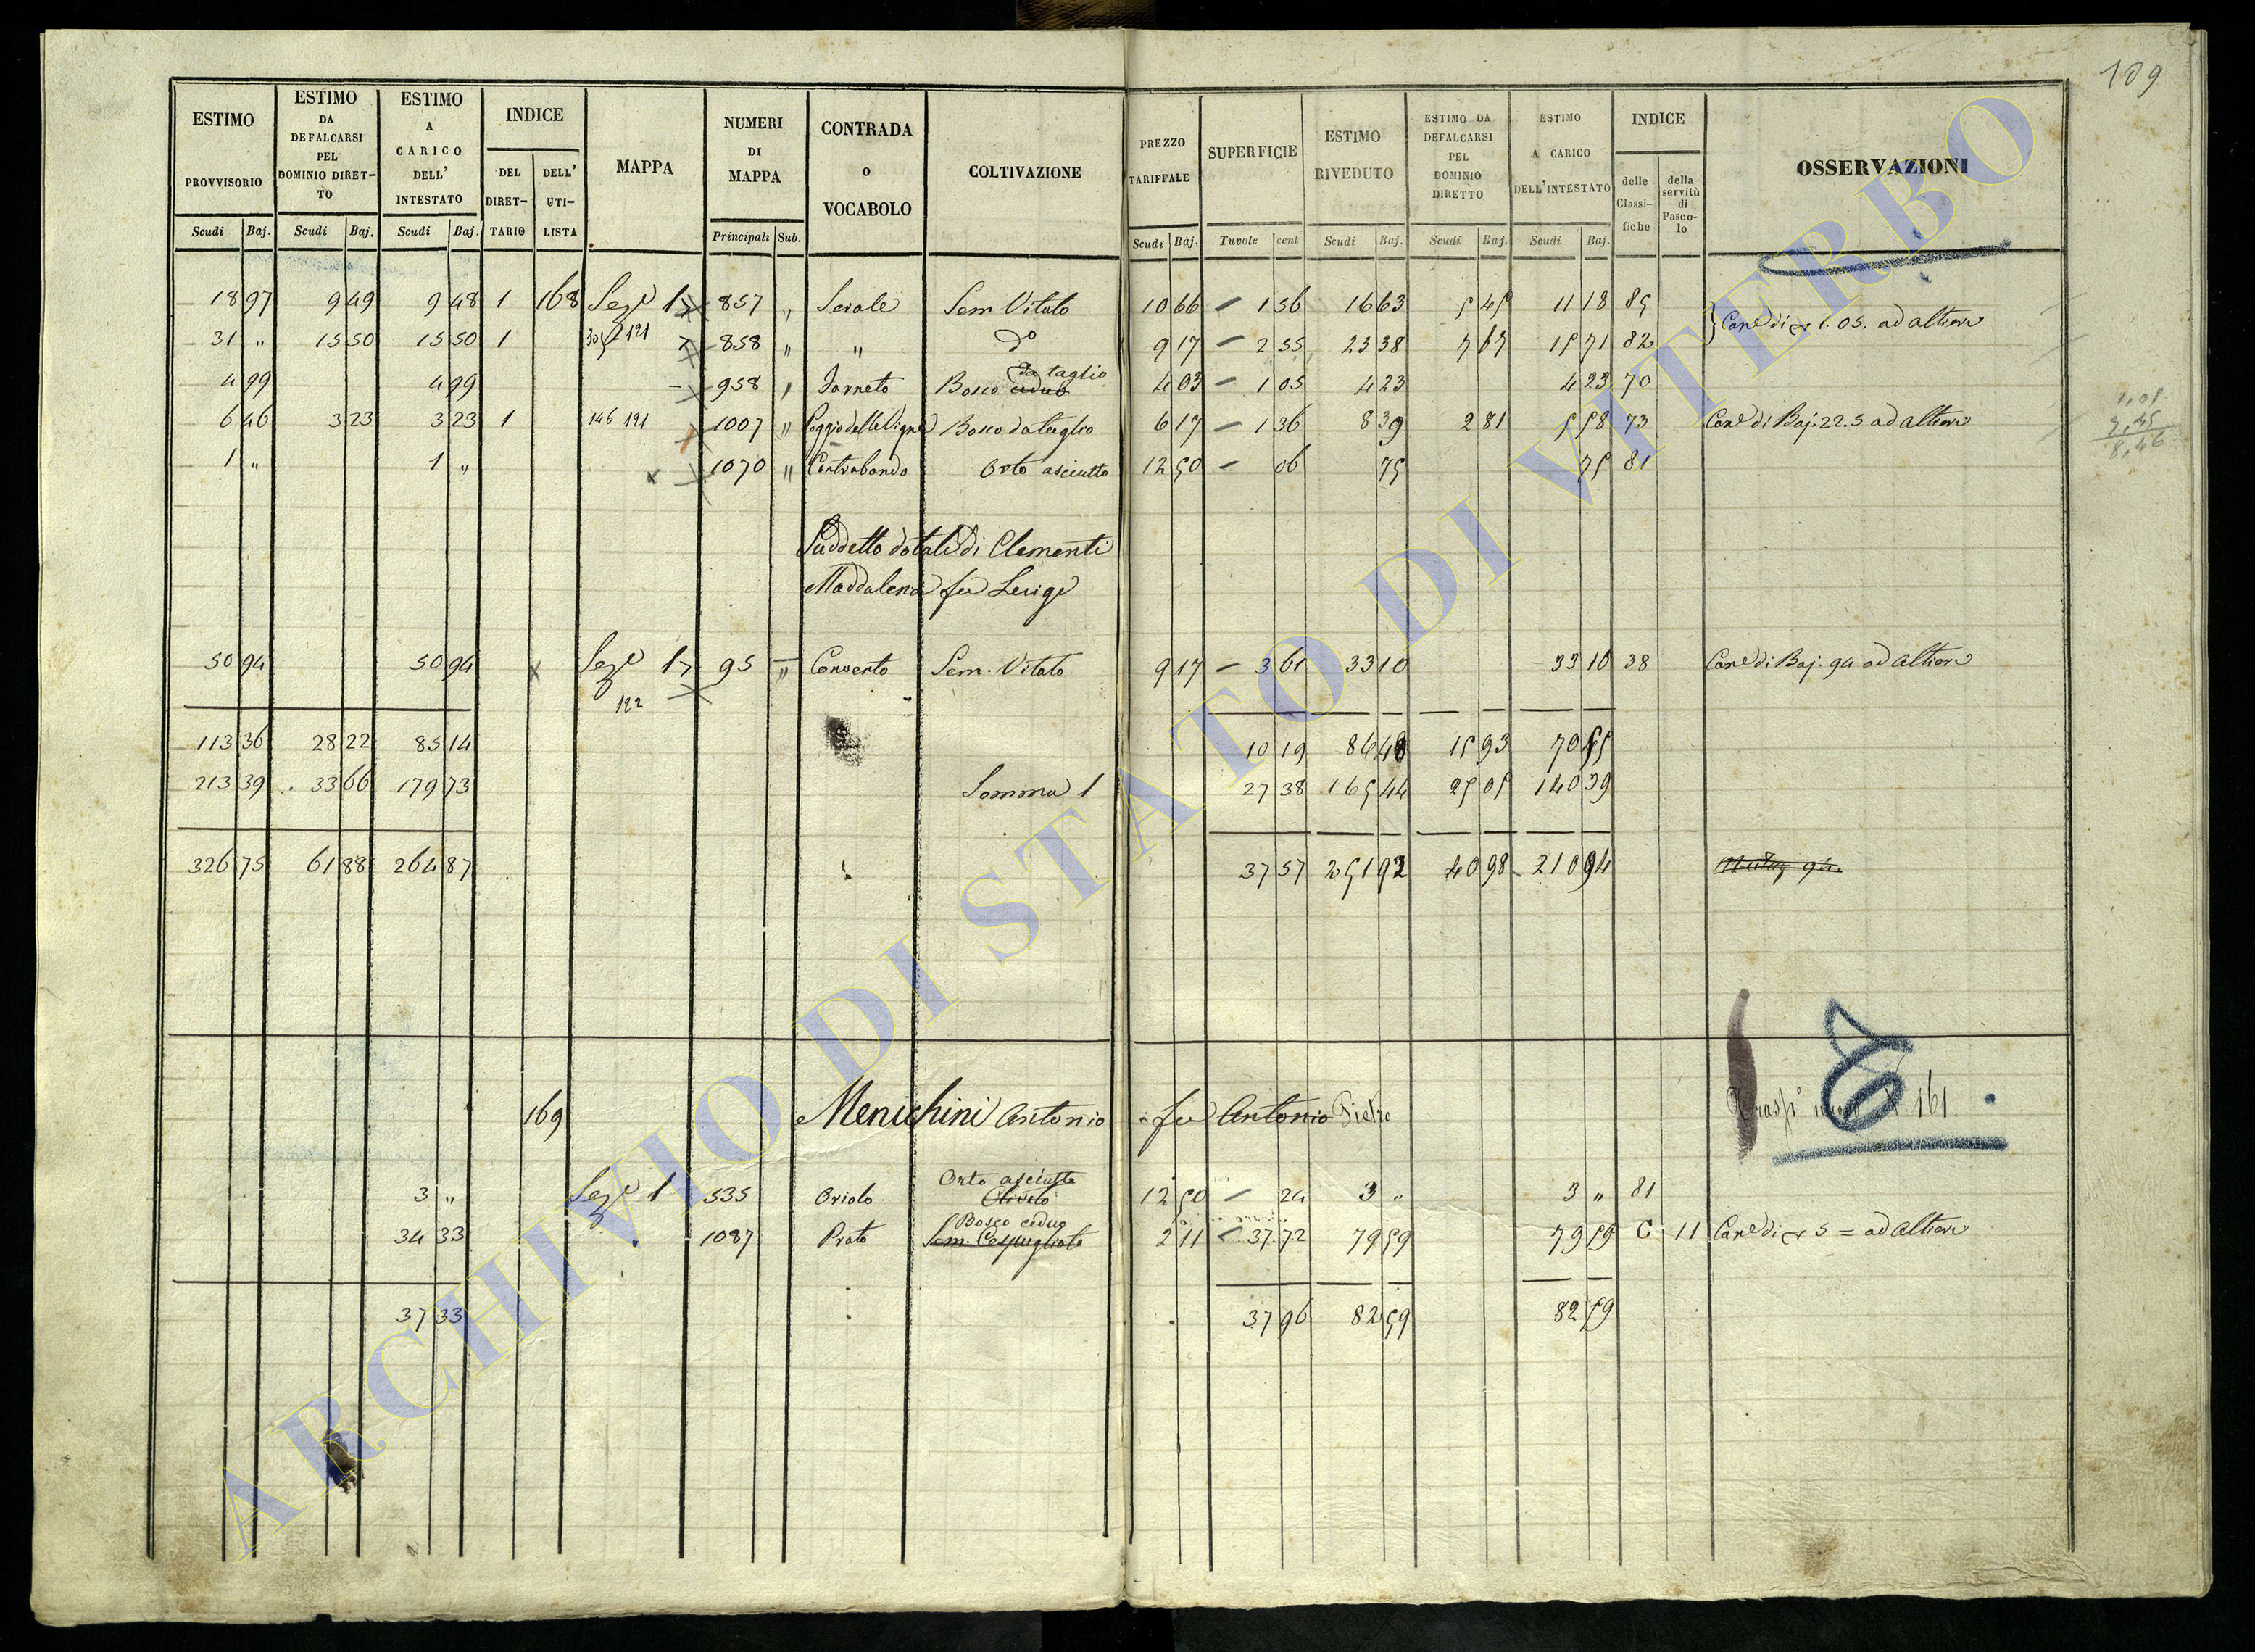 109
ESTIMO PROVVISORIO
ESTIMO DA DEFALCARSI PEL DOMINIO DIRET-TO
ESTIMO A CARICO DELL' INTESTATO
INDICE
DEL DIRET-TARIO
DELL' UTI-LISTA
MAPPA
NUMERI DI MAPPA
CONTRADA o VOCABOLO
COLTIVAZIONE
PREZZO TARIFFALE
SUPERFICIE
ESTIMO RIVEDUTO
ESTIMO DA DEFALCARSI PEL DOMINIO DIRETTO
ESTIMO A CARICO DELL'INTESTATO
INDICE
delle Classi-fiche
della servitù di Pasco-lo
OSSERVAZIONI
Scudi Baj. Scudi Baj. Scudi Baj. Principali Sub. Scudi Baj. Tavole cent Scudi Baj. Scudi Baj. Scudi Baj.
18 97 9 49 9 48 1 168 Seze 1 857 " Serale Sem. Vitato 10 66 – 1 56 16 63 5 45 11 18 85
31 " 15 50 15 50 1 121 858 " " Do 9 17 – 2 55 23 38 7 67 15 71 82 Cane di 1.05. ad Altieri
4 99 4 99 – 958 " Farneto Bosco ceduo da taglio 4 03 – 1 05 4 23 4 23 70
6 46 3 23 3 23 1 146 121 1007 " Poggio delle Vigne Bosco da taglio 6 17 – 1 36 8 39 2 81 5 58 73 Cane di Baj. 22.5 ad Altieri
1 " 1 " 1070 " Contrabando Orto asciutto 12 50 – 06 75 75 81
Suddetto dotali di Clementi
Maddalena fu Luigi
50 94 50 94 Seze 1 95 " Convento Sem. Vitato 9 17 – 3 61 33 10 33 10 38 Cane di Baj. 94 ad Altieri
122
113 36 28 22 85 14 10 19 86 48 15 93 70 55
213 39 33 66 179 73 Somma 1 27 38 165 44 25 05 140 39
326 75 61 88 264 87 37 57 251 92 40 98 210 94
169 Menichini Antonio fu Antonio Pietro 161
3 " Seze 1 535 Oriolo Orto asciutto Oliveto 12 50 – 24 3 " 3 " 81
34 33 1087 Prato Bosco ceduo Sem. Cespugliato 2 11 – 37 72 79 59 79 59 C 11 Cane di 5 = ad Altieri
37 33 37 96 82 59 82 59
ARCHIVIO DI STATO DI VITERBO